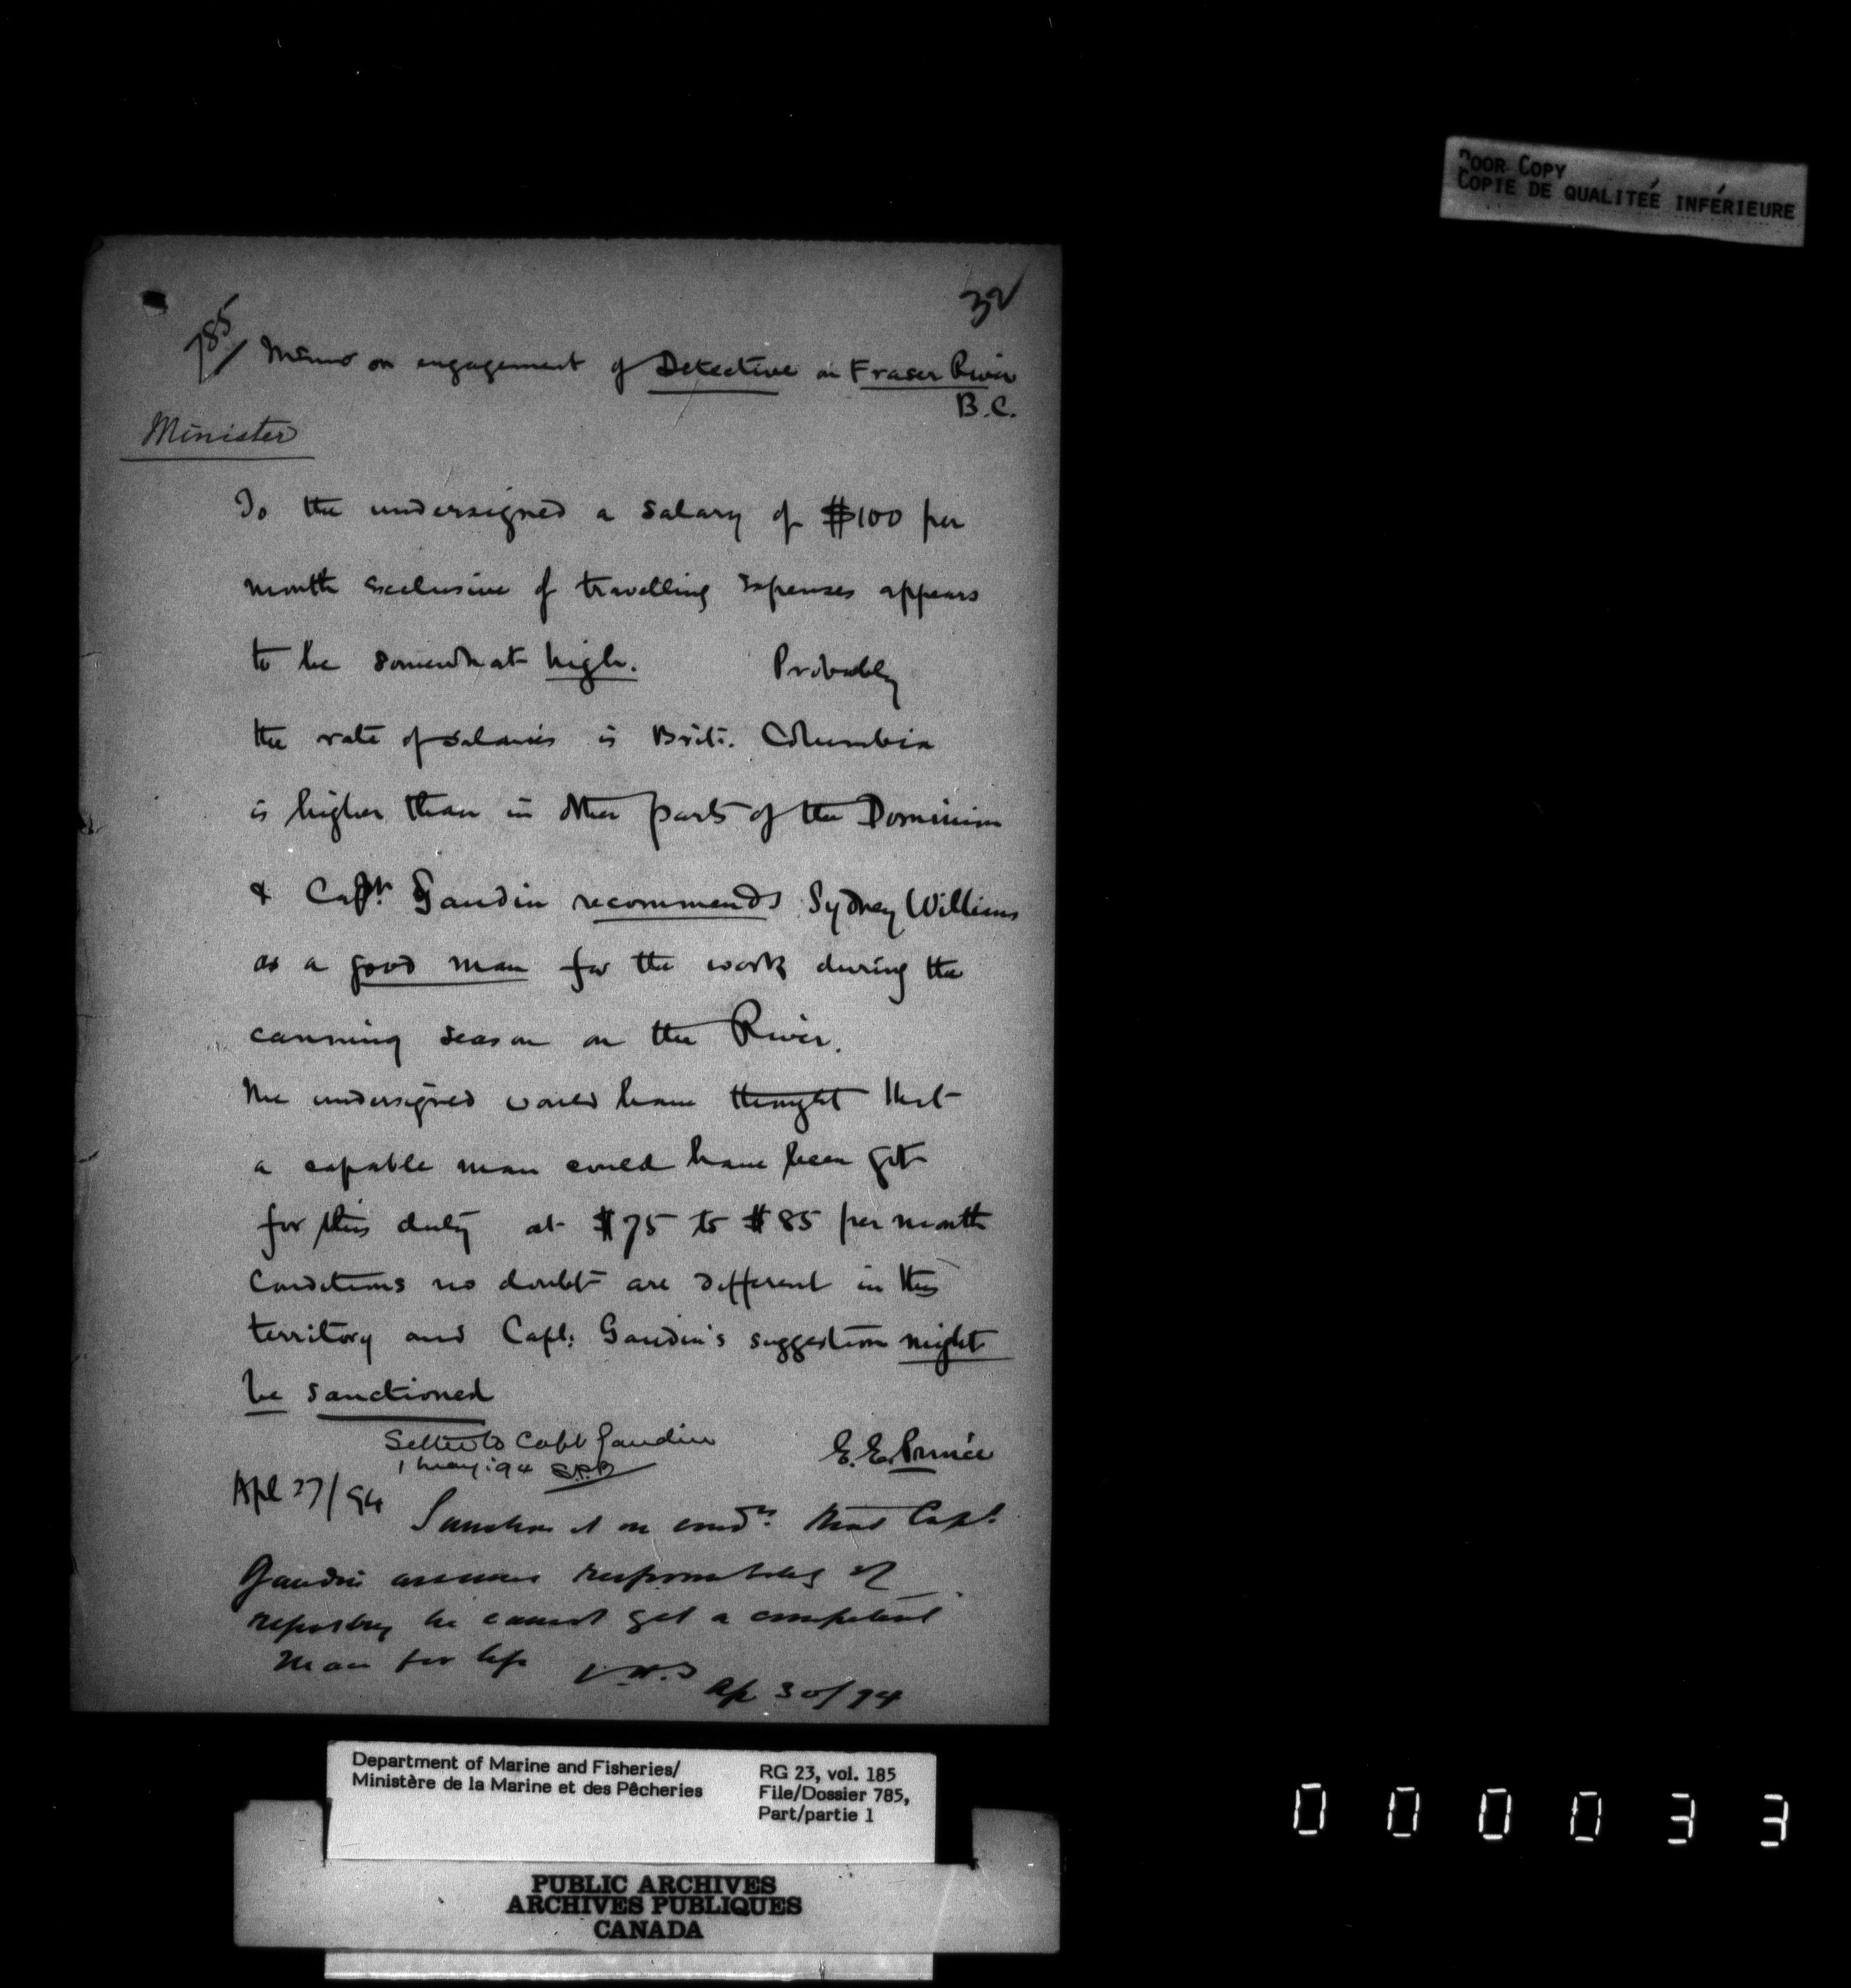 POOR COPY
COPIE DE QUALITEÉ INFÉRIEURE
32
785 Memo on engagement of Detective on Fraser River
B.C.
Minister
To the undersigned a salary of $100 per
month exclusive of travelling expenses appears
to be somewhat high. Probably
the rate of salaries in Brit. Columbia
is higher than in other parts of the Dominion
& Capt. Gaudin recommends Sydney Williams
as a good man for the work during the
canning season on the River.
The undersigned would have thought that
a capable man could have been got
for this duty at $75 to $85 per month
Conditions no doubt are different in this
territory and Capt. Gaudin's suggestion might
be sanctioned
Letter to Capt Gaudin
1 May '94
E. E. Prince
Apl 27/94
Sanction it on condn. that Capt.
Gaudin assumes responsibility of
reporting he cannot get a competent
man for less
Ap 30/94
Department of Marine and Fisheries/
Ministère de la Marine et des Pêcheries
RG 23, vol. 185
File/Dossier 785,
Part/partie 1
PUBLIC ARCHIVES
ARCHIVES PUBLIQUES
CANADA
000033